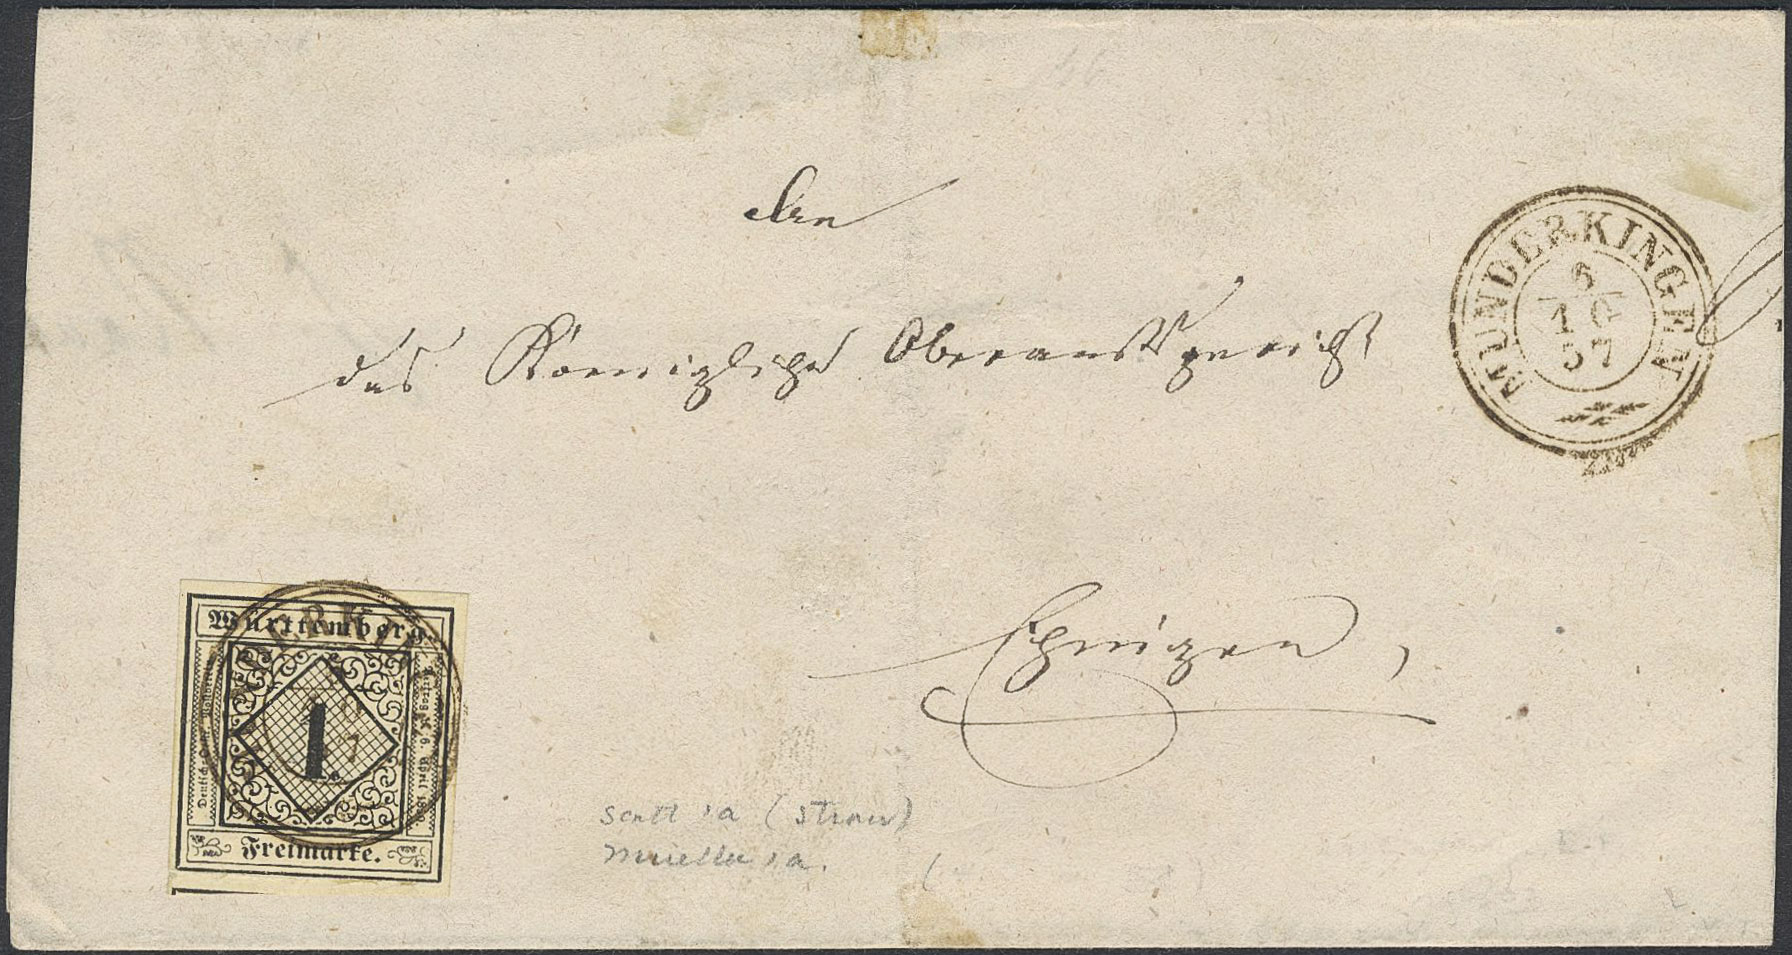 An
das Koenigliche Oberamtsgericht
Ehingen,
MUNDERKINGEN
6
10
57
Württemberg.
1
Freimarke.
Scott 1a (straw)
Mueller 1a.